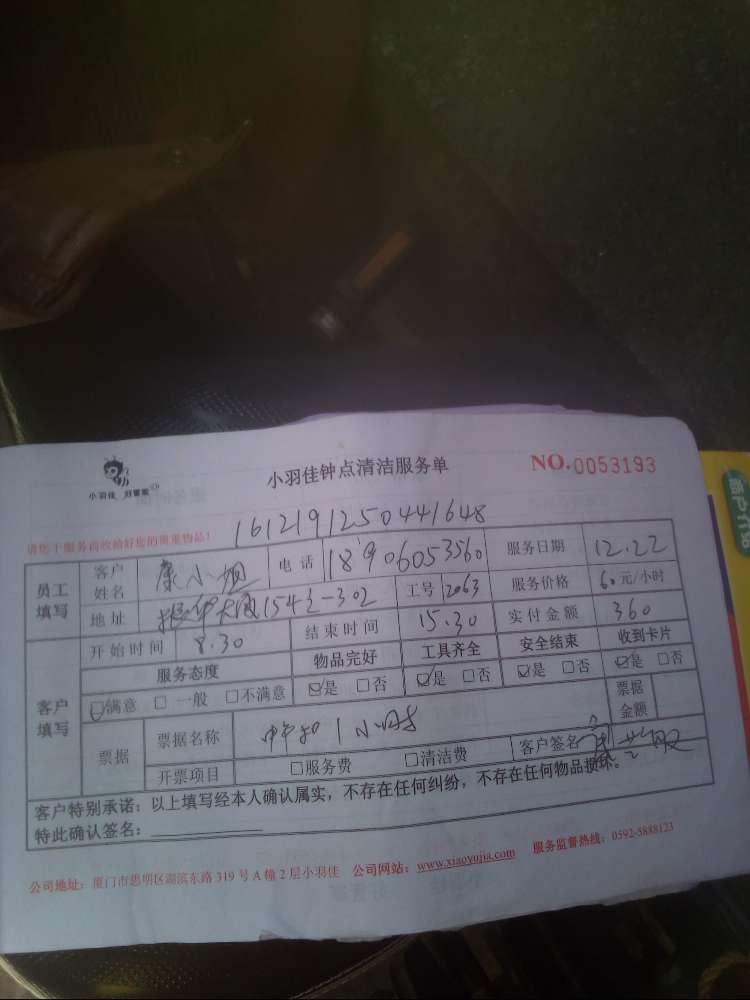 小羽佳 好管家
小羽佳钟点清洁服务单
NO.0053193
请您于服务前收拾好您的贵重物品！
161219125044 1648
员工填写 客户姓名 康小姐 电话 18906053560 服务日期 12.22
地址 振华大厦154之-302 工号 2063 服务价格 60元/小时
开始时间 8.30 结束时间 15.30 实付金额 360
客户填写 服务态度 物品完好 工具齐全 安全结束 收到卡片
☑满意 □一般 □不满意 ☑是 □否 ☑是 □否 ☑是 □否 ☑是 □否
票据 票据名称 中午扣1小时 票据金额
开票项目 □服务费 □清洁费 客户签名
客户特别承诺：以上填写经本人确认属实，不存在任何纠纷，不存在任何物品损坏。
特此确认签名：
公司地址：厦门市思明区湖滨东路319号A幢2层小羽佳 公司网站：www.xiaoyujia.com 服务监督热线：0592-5888123